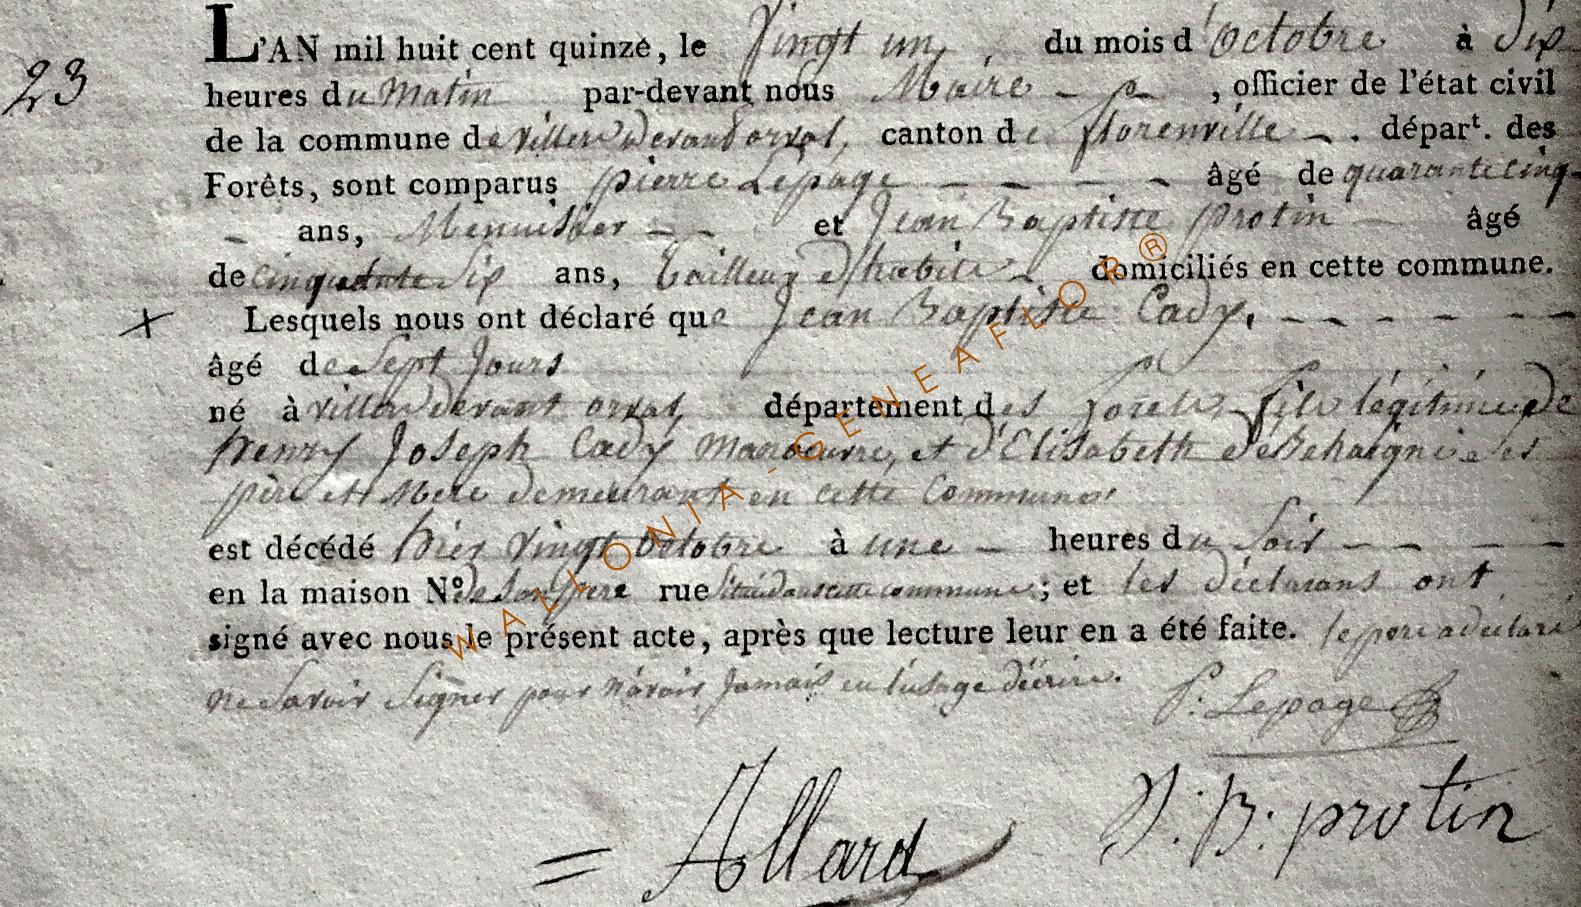 23
L'AN mil huit cent quinze, le Vingt un du mois d'Octobre à dix
heures du Matin par-devant nous Maire , officier de l'état civil
de la commune de villers devant orval, canton de florenville . départ. des
Forêts, sont comparus pierre Lepage âgé de quarante cinq
ans, Menuisier et Jean Baptiste protin âgé
de cinquante Six ans, tailleur d'habits domiciliés en cette commune.
Lesquels nous ont déclaré que Jean Baptiste Cady,
âgé de Sept Jours
né à villers devant orval, département des forets, fils légitime de
henry Joseph Cady Manoeuvre, et d'Elisabeth ses
père et Mere demeurant en cette Commune
est décédé hier Vingt Octobre à une heures du Soir
en la maison N° de Son pere rue Située dans cette commune; et les déclarans ont
signé avec nous le présent acte, après que lecture leur en a été faite. le pere a déclaré
ne Savoir Signer pour n'avoir Jamais eu l'usage d'écrire.
P. Lepage
Allard
J. B. protin
WALLONIA-GENEAFLOR®